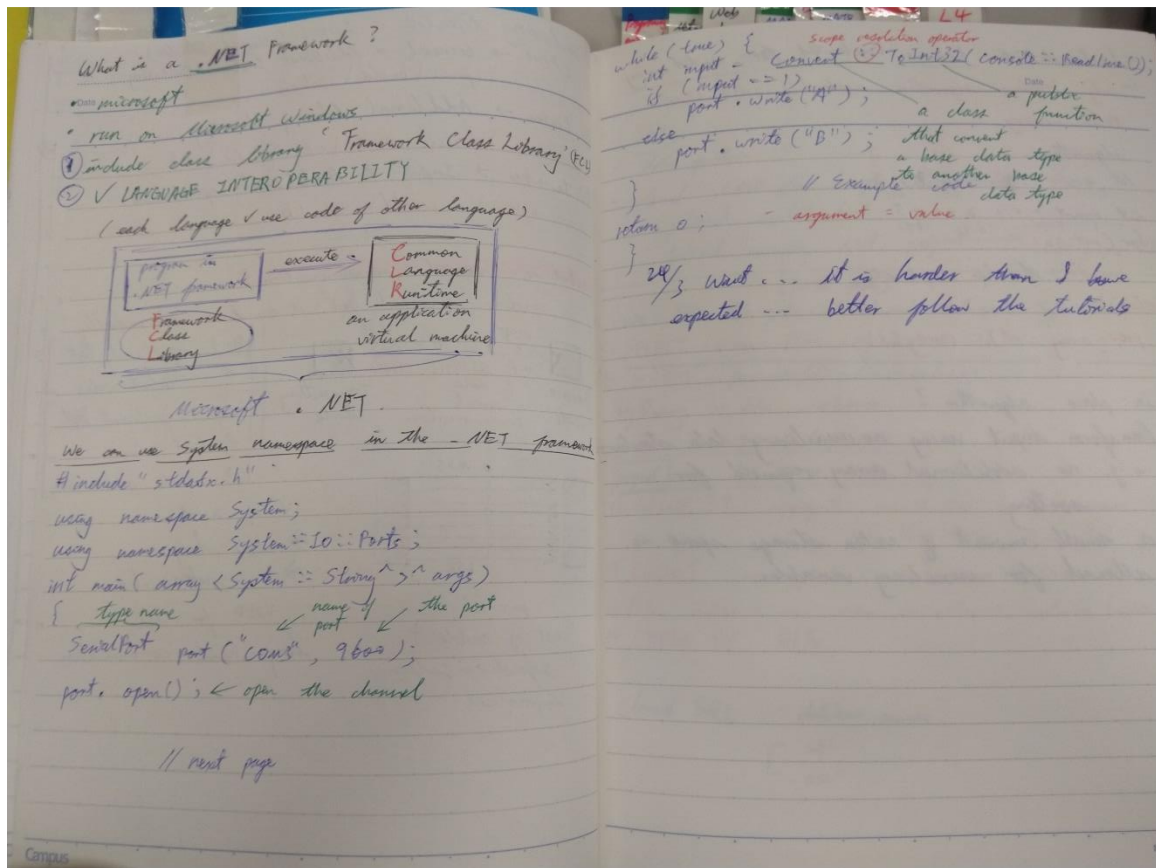 What is a .NET Framework ?
• microsoft
• run on Microsoft Windows
① include class library 'Framework Class Library' (FCL)
② ✓ LANGUAGE INTEROPERABILITY
(each language ✓ use code of other language)
program in
.NET framework
execute
Common
Language
Runtime
Framework
Class
Library
an application
virtual machine
Microsoft .NET
We can use System namespace in the .NET framework
#include "stdafx.h"
using namespace System;
using namespace System::IO::Ports;
int main( array <System :: String^ >^ args)
{ type name
name of port
the port
SerialPort port ("COM3" , 9600);
port. open() ; ← open the channel
// next page
Campus
L4
Web
while (true) { scope resolution operator
int input = Convert :: ToInt32( Console :: ReadLine());
Date
if (input == 1)
port . write ("A") ;
else
port . write ("B") ;
a class
that convert
a base data type
to another base
data type
a public
function
// Example code
}
return 0 ;
- argument = value
}
24/3 wait ... it is harder than I have
expected ... better follow the tutorials